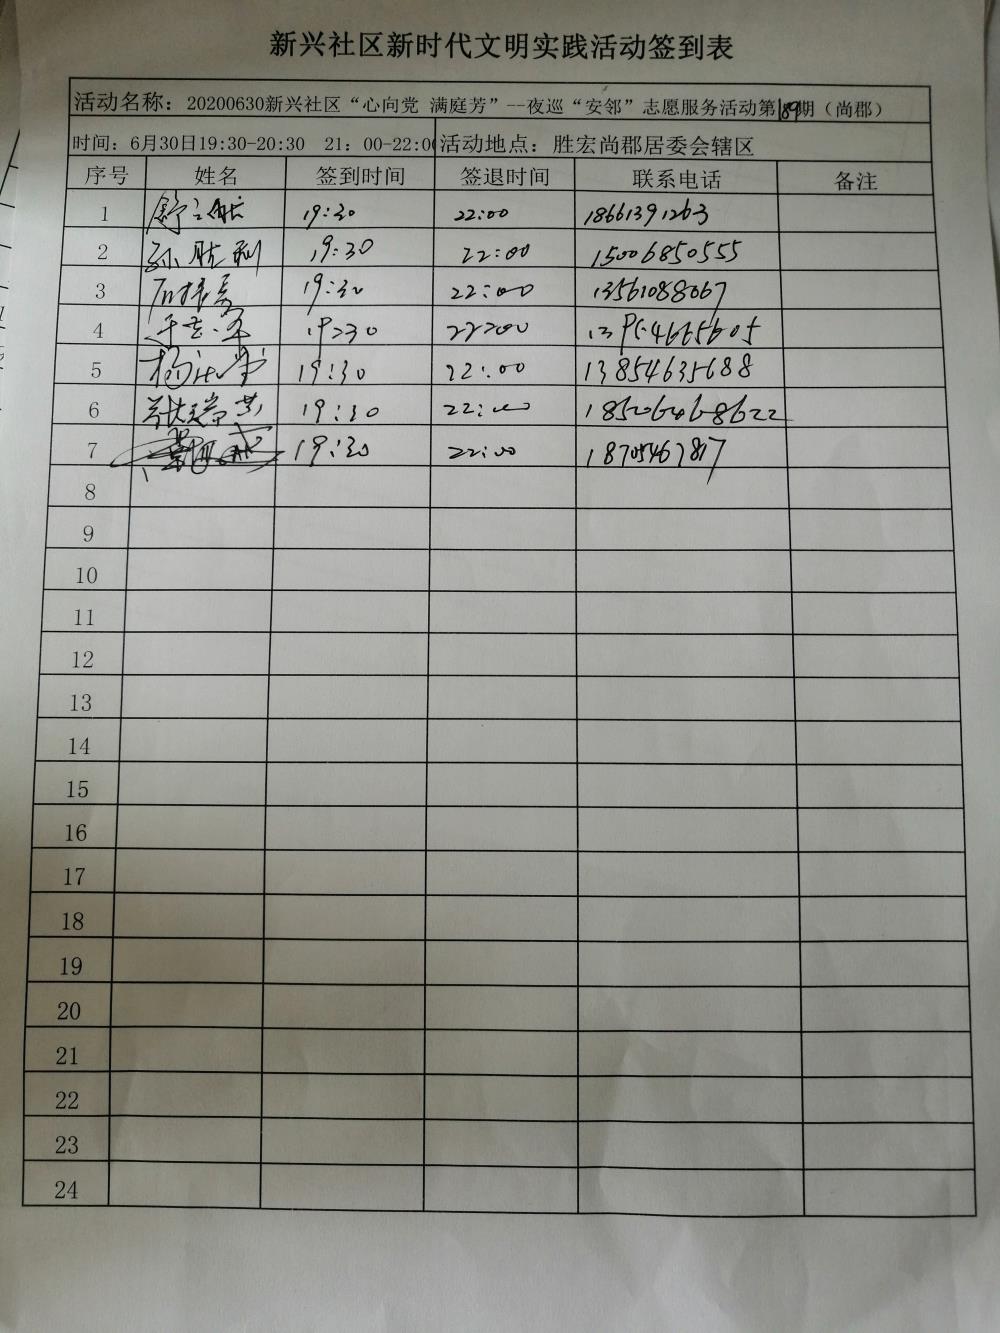 新兴社区新时代文明实践活动签到表
活动名称：20200630新兴社区“心向党 满庭芳”--夜巡“安邻”志愿服务活动第189期（尚郡）
时间：6月30日19:30-20:30 21：00-22:00 活动地点：胜宏尚郡居委会辖区
序号 姓名 签到时间 签退时间 联系电话 备注
1 19:30 22:00 18661391263
2 孙胜利 19:30 22:00 15006850555
3 19:30 22:00 13561088067
4 19:30 22:00
5 19:30 22:00 13854635688
6 19:30 22:00 185206468622
7 19:30 22:00 18705467817
8
9
10
11
12
13
14
15
16
17
18
19
20
21
22
23
24